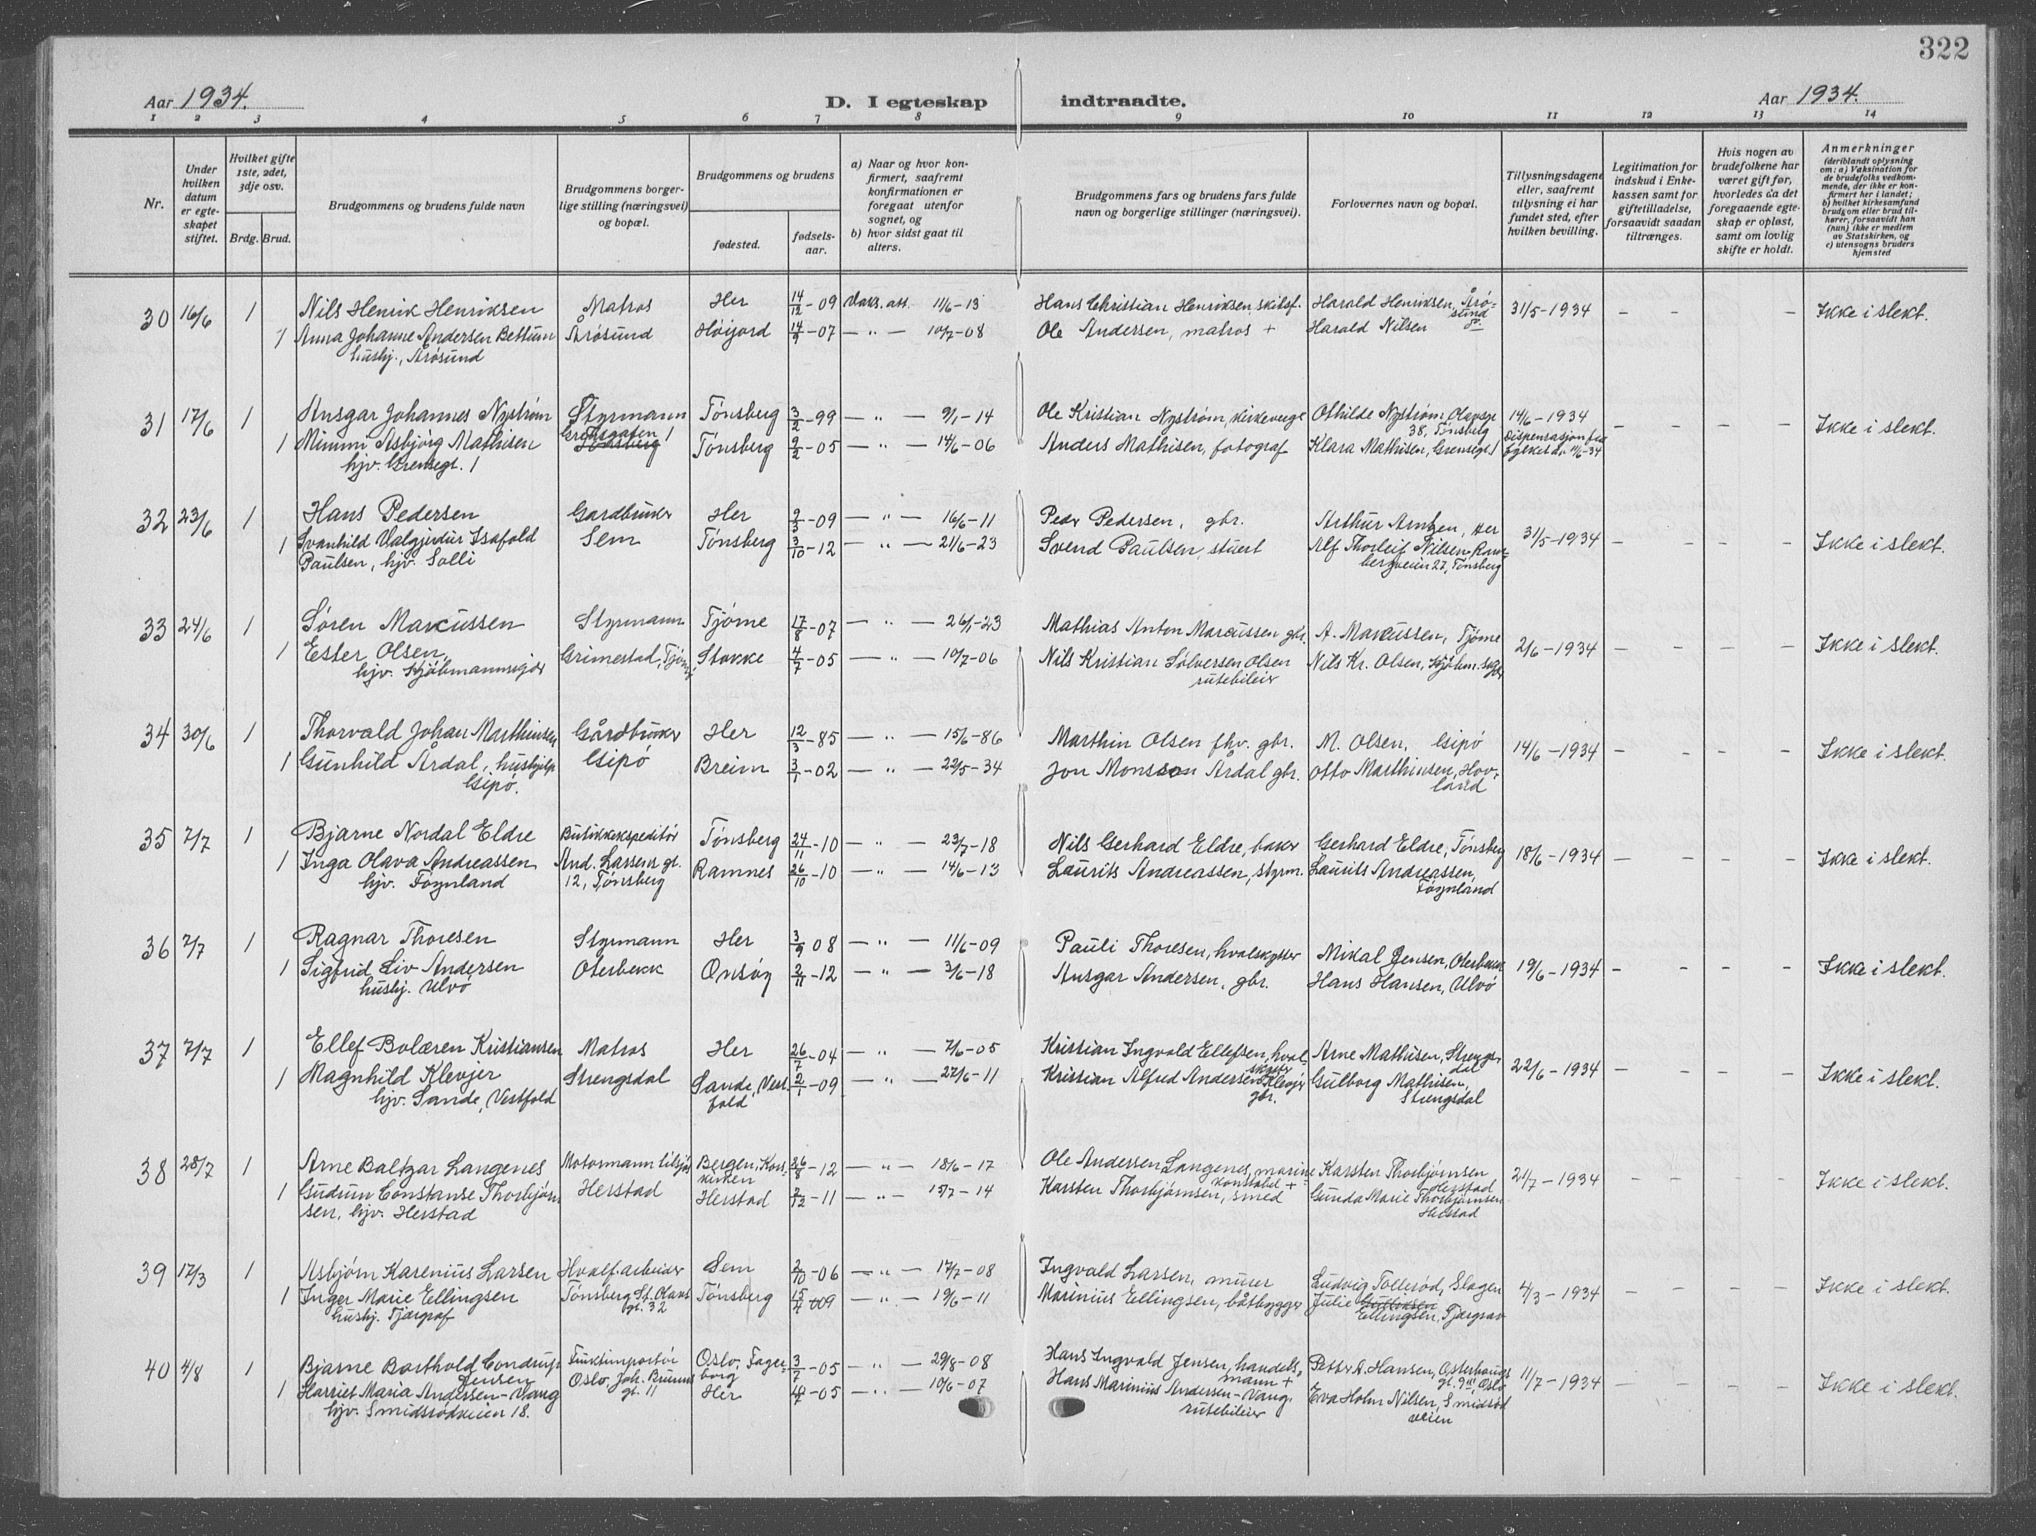 322
Aar 1934.
D. I egteskap indtraadte.
Aar 1934.
1 2 3 4 5 6 7 8 9 10 11 12 13 14
Nr.
Under hvilken datum er egte-skapet stiftet.
Hvilket gifte 1ste, 2det, 3dje osv.
Brdg. Brud.
Brudgommens og brudens fulde navn
Brudgommens borger-lige stilling (næringsvei) og bopæl.
Brudgommens og brudens
fødested.
fødsels-aar.
a) Naar og hvor kon-firmert, saafremt konfirmationen er foregaat utenfor sognet, og
b) hvor sidst gaat til alters.
Brudgommens fars og brudens fars fulde navn og borgerlige stillinger (næringsvei).
Forlovernes navn og bopæl.
Tillysningsdagene eller, saafremt tillysning ei har fundet sted, efter hvilken bevilling.
Legitimation for indskud i Enke-kassen samt for giftetilladelse, forsaavidt saadan tiltrænges.
Hvis nogen av brudefolkene har været gift før, hvorledes da det foregaaende egte-skap er opløst, samt om lovlig skifte er holdt.
Anmerkninger
(deriblandt oplysning om: a) Vaksination for de brudefolks vedkom-mende, der ikke er kon-firmert her i landet; b) hvilket kirkesamfund brudgom eller brud til-hører, forsaavidt han (hun) ikke er medlem av Statskirken, og c) utensogns bruders hjemsted
30 16/6 1 Nils Henrik Henriksen Matros Her 14/12-09 Vaks. att. 11/6-13 Hans Christian Henriksen, skibsf. Harald Henriksen, Årø-sund 31/5-1934 - - - Ikke i slekt.
1 Anna Johanne Andersen Bettum Årøsund Høijord 14/9-07 - " - 10/7-08 Ole Andersen, matros + Harald Nilsen
hushj., Årøsund
31 17/6 1 Ansgar Johannes Nystrøm Styrmann Tønsberg 3/2-99 - " - 9/1-14 Ole Kristian Nystrøm, kirkeverge Othilde Nystrøm, Olavsgt. 38, Tønsberg 14/6-1934 - - - - Ikke i slekt.
1 Mimmi Asbjørg Mathisen Grensegaten 1 Tønsberg Tønsberg 9/2-05 - " - 14/6-06 Anders Mathisen, fotograf Klara Mathisen, Grensegt. 1 Dispensasjon fra fylket av 11/6-34
hjv. Grensegt. 1
32 23/6 1 Hans Pedersen Gardbruker Her 2/3-09 - " - 16/6-11 Peder Pedersen, gbr. Arthur Arntzen, Her 31/5-1934 - - - - Ikke i slekt.
1 Svanhild Valgjerdur Isafold Sem Tønsberg 3/10-12 - " - 21/6-23 Svend Paulsen, stuert Alf Thorleif Nilsen, Ram-bergveien 27, Tønsberg
Paulsen, hjv. Solli
33 24/6 1 Søren Marcussen Styrmann Tjøme 17/8-07 - " - 26/1-23 Mathias Anton Marcussen gbr. A. Marcussen, Tjøme 2/6-1934 - - - - Ikke i slekt.
1 Ester Olsen, Grimestad, Tjøme Stokke 4/7-05 - " - 10/7-06 Nils Kristian Sølversen Olsen Nils Kr. Olsen, Kjøbm.skjær
hjv. Kjøbmannskjær rutebileier
34 30/6 1 Thorvald Johan Marthinsen Gårdbruker Her 12/3-85 - " - 15/6-86 Marthin Olsen fhv. gbr. M. Olsen, Gipø 14/6-1934 - - - - Ikke i slekt.
1 Gunhild Årdal, hushjelp Gipø Breim 3/1-02 - " - 22/5-34 Jon Monsson Årdal gbr. Otto Marthinsen, Hov-land
Gipø.
35 7/7 1 Bjarne Nordal Eldre Butikkekspeditør Tønsberg 24/11-10 - " - 23/7-18 Nils Gerhard Eldre, baker Gerhard Eldre, Tønsberg 18/6-1934 - - - - Ikke i slekt.
1 Inga Olava Andreassen And. Lassens gt. Ramnes 26/10-10 - " - 14/6-13 Laurits Andreassen, styrm. Laurits Andreassen, Føynland
hjv. Føynland 12, Tønsberg
36 7/7 1 Ragnar Thoresen Styrmann Her 3/9 08 - " - 11/6-09 Pauli Thoresen, hvalskytter Mikal Jensen, Oterbekk 19/6-1934 - - - - Ikke i slekt.
1 Sigfrid Liv Andersen Oterbekk Onsøy 2/11-12 - " - 3/6-18 Ansgar Andersen, gbr. Hans Hansen, Ulvø
hushj. Ulvø
37 7/7 1 Ellef Bolæren Kristiansen Matros Her 26/7-04 - " - 7/6-05 Kristian Ingvald Ellefsen, hval-skytter Arne Mathisen, Strengs-dal 22/6-1934 - - - - Ikke i slekt.
1 Magnhild Klevjer Strengsdal Sande, Vest-fold 2/1-09 - " - 22/6-11 Kristian Alfred Andersen Klevjer gbr. Gulborg Mathisen, Strengsdal
hjv. Sande, Vestfold
38 28/7 1 Arne Baltzar Langenes Motormann tilsjøs Bergen, Kors-kirken 26/8-12 - " - 18/6-17 Ole Andersen Langenes, marine konstabel + Karsten Thorbjørnsen Herstad 21/7-1934 - - - - Ikke i slekt.
1 Gudrun Constanse Thorbjørn-sen, hjv. Herstad Herstad Herstad 2/12-11 - " - 15/7-14 Karsten Thorbjørnsen, smed Gunda Marie Thorbjørnsen Herstad
39 17/3 1 Asbjørn Karenius Larsen Hvalfarbeider Sem 2/10-06 - " - 17/7-08 Ingvald Larsen, murer Ludvig Tollerød, Slagen 4/3-1934 - - - - Ikke i slekt.
1 Inger Marie Ellingsen Tønsberg St. Olavs gt. 32 Tønsberg 15/4-09 - " - 19/6-11 Marinius Ellingsen, båtbygger Julie Ellingsen, Tjærgrav
hushj. Tjærgraf
40 4/8 1 Bjarne Barthold Condrup Jensen Funktinportør Oslo, Fager-borg 3/2-05 - " - 29/8-08 Hans Ingvald Jensen, handels-mann + Petter A. Hansen, Osterhaugs gt. 9, Oslo 11/7-1934 - - - - Ikke i slekt.
1 Harriet Maria Andersen-Vang Oslo, Joh. Bruuns gt. 11 Her 4/7-05 - " - 10/6-07 Hans Marinius Andersen-Vang, rutebileier Eva Holm Nilsen, Smidsrød veien
hjv. Smidsrødveien 18.